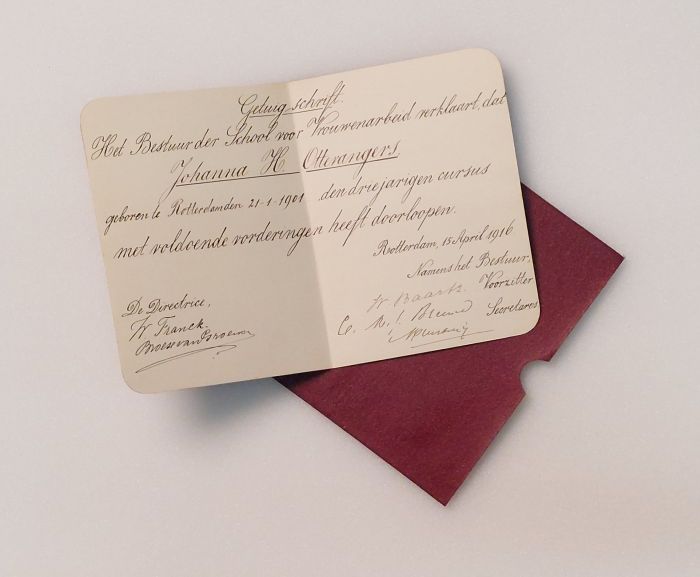 Getuigschrift.
Het Bestuur der School voor Vrouwenarbeid verklaart, dat
Johanna H. Otterangers,
geboren te Rotterdam den 21-1-1901 den driejarigen cursus
met voldoende vorderingen heeft doorloopen.
Rotterdam, 15 April 1916
Namens het Bestuur,
De Directrice,
Voorzitter
W Franck.
Secretares
Broese van